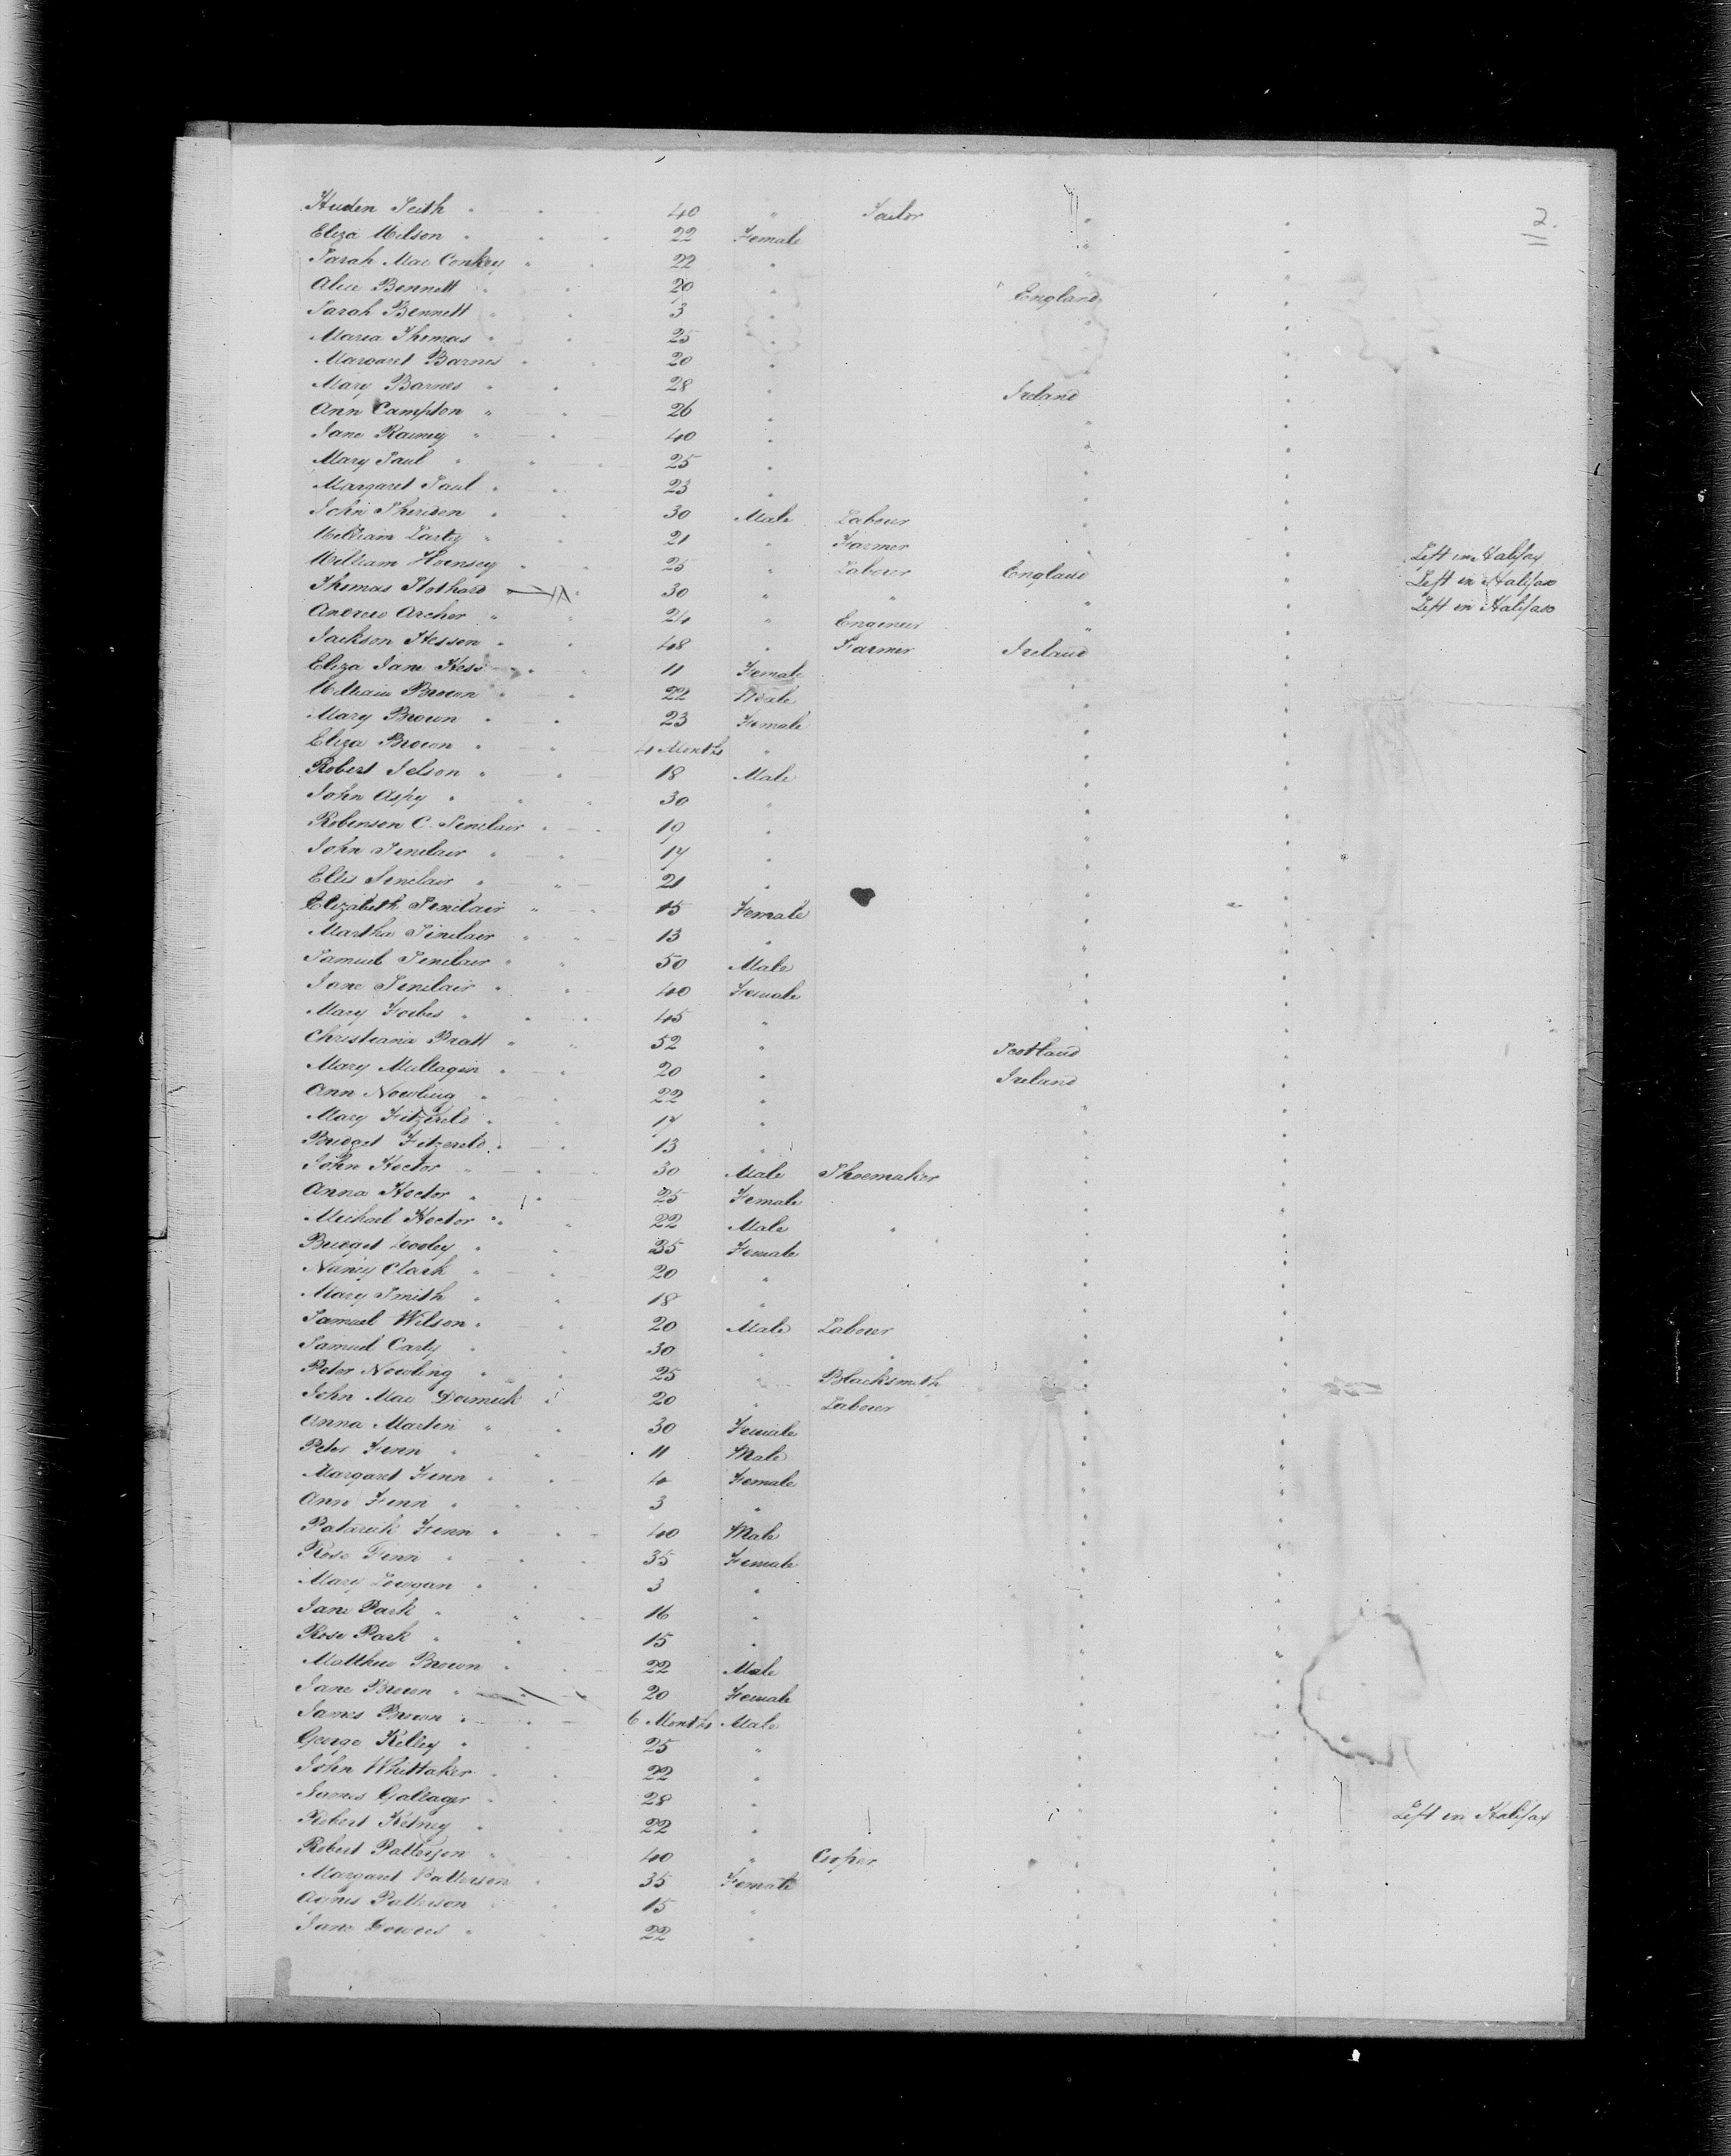 2.
Huden Seith " " " 40 " Tailor " "
Eliza Wilson " " " 22 Female " "
Sarah Mac Conkey " " 22 " " "
Alice Bennett " " 20 " England "
Sarah Bennett " " 3 " " "
Maria Thomas " " 25 " " "
Margaret Barnes " " 20 " " "
Mary Barnes " " 28 " Ireland "
Ann Campton " " 26 " " "
Jane Rainey " " 40 " " "
Mary Paul " " " 25 " " "
Margaret Paul " " 23 " " "
John Sheriden " " 30 Male Labour " "
William Larty " " 21 " Farmer " " Left in Halifax
William Hornsey " " 25 " Labour England " Left in Halifax
Thomas Stothard " " 30 " " " " Left in Halifax
Andrew Archer " " 24 " Engineer " "
Jackson Hesson " " 48 " Farmer Ireland "
Eliza Jane Hess " " 11 Female " "
William Brown " " 22 Male " "
Mary Brown " " 23 Female " "
Eliza Brown " " 4 Months " " "
Robert Jelson " " 18 Male " "
John Aspy " " " 30 " " "
Robenson C. Sinclair " " 19 " " "
John Sinclair " " 17 " " "
Ellis Sinclair " " 21 " " "
Elizabeth Sinclair " " 15 Female " "
Martha Sinclair " " 13 " " "
Samuel Sinclair " " 50 Male " "
Jane Sinclair " " 40 Female " "
Mary Forbes " " " 45 " " "
Christiana Pratt " " 52 " Scotland "
Mary Mullagin " " 20 " Ireland "
Ann Nowling " " 22 " " "
Mary Fitzerld " " 17 " " "
Bridget Fitzerld " " 13 " " "
John Hoctor " " " 30 Male Shoemaker " "
Anna Hoctor " " 25 Female " "
Michael Hoctor " " 22 Male " " "
Bridget Dooley " " 35 Female " "
Nancy Clark " " 20 " " "
Mary Smith " " 18 " " "
Samuel Wilson " " 20 Male Labour " "
Samuel Carty " " 30 " " " "
Peter Nowling " " " 25 " Blacksmith " "
John Mac Dormick " 20 " Labour " "
Anna Martin " " 30 Female " "
Peter Finn " " 11 Male " "
Margaret Finn " " 4 Female " "
Ann Finn " " 3 " " "
Patarick Finn " " " 40 Male " "
Rose Finn " " 35 Female " "
Mary " " 3 " " "
Jane Park " " " 16 " " "
Rose Park " " 15 " " "
Matthew Brown " " 22 Male " "
Jane Brown " 20 Female " "
James Brown " " 6 Months Male " "
George Killey " " 25 " " "
John Whittaker " " 22 " " "
James Gallager " " 28 " " " Left in Halifax
Robert Kitney " " 22 " " "
Robert Patterson " " 40 " Cooper " "
Margaret Patterson " 35 Female " "
Agnes Patterson " " 15 " " "
Jane " " 22 " " "